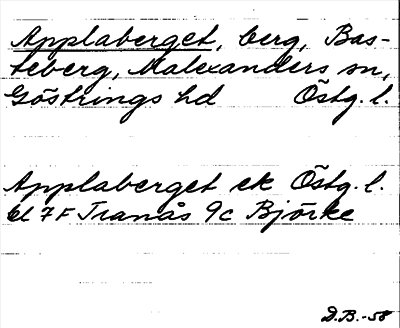 Applaberget, berg, Bas-
teberg, Malexanders sn,
Göstrings hd Östg. l.
Applaberget ek Östg. l.
bl 7F Tranås 9c Björke
D.B.-58